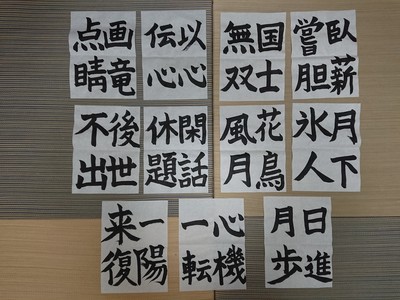 臥薪
嘗胆
国士
無双
以心
伝心
画竜
点睛
月下
氷人
花鳥
風月
閑話
休題
後世
不出
日進
月歩
心機
一転
一陽
来復